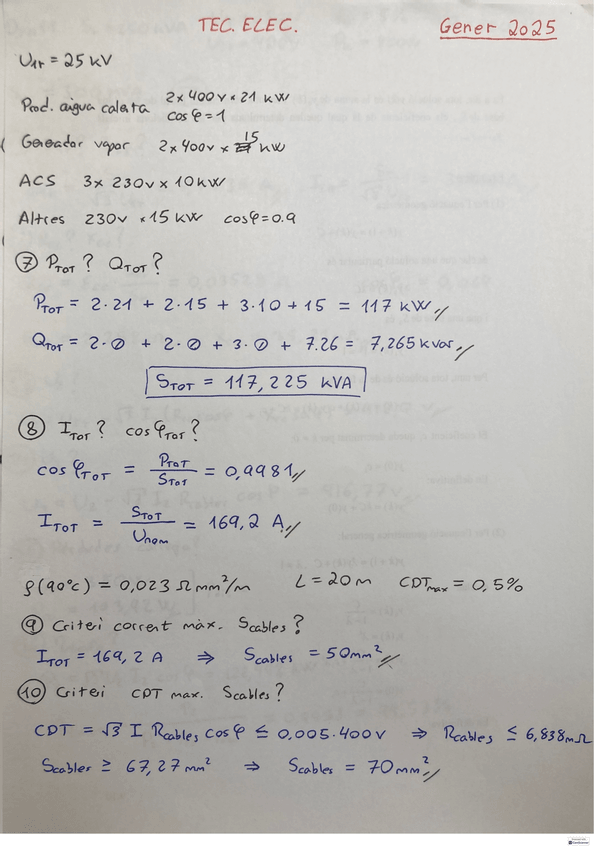 TEC. ELEC. Gener 2025
U1r = 25 kV
Prod. aigua calenta 2 x 400 v x 21 kW
cos φ = 1
Generador vapor 2 x 400 v x 15 kW
ACS 3 x 230 v x 10 kW
Altres 230 v x 15 kW cos φ = 0.9
⑦ PTOT ? QTOT ?
PTOT = 2·21 + 2·15 + 3·10 + 15 = 117 kW //
QTOT = 2·0 + 2·0 + 3·0 + 7.26 = 7,265 kvar //
STOT = 117,225 kVA
⑧ ITOT ? cos φTOT ?
cos φTOT = PTOT / STOT = 0,9981 //
ITOT = STOT / Unom = 169,2 A //
ρ(90°c) = 0,023 Ω mm²/m L = 20 m CDTmax = 0,5%
⑨ Criteri corrent màx. Scables ?
ITOT = 169,2 A ⇒ Scables = 50 mm² //
⑩ Criteri CDT max. Scables ?
CDT = √3 I Rcables cos φ ≤ 0,005·400 v ⇒ Rcables ≤ 6,838 mΩ
Scables ≥ 67,27 mm² ⇒ Scables = 70 mm² //